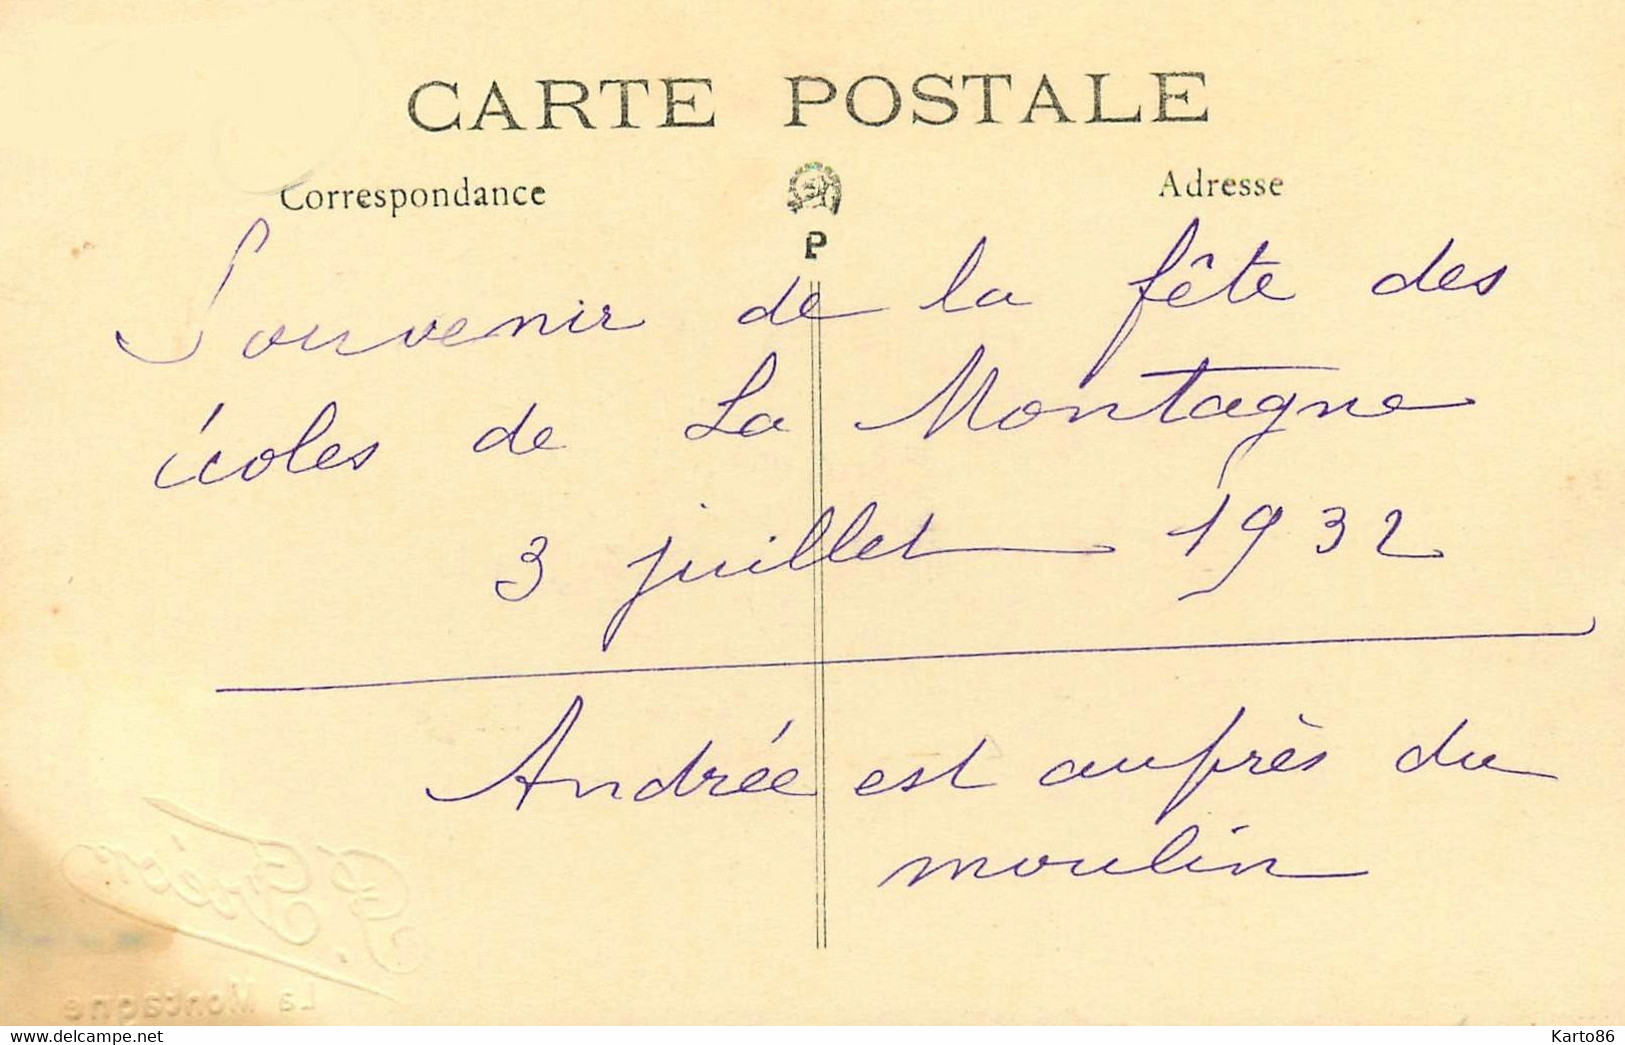 CARTE POSTALE
Correspondance
Adresse
P
Souvenir de la fête des
écoles de La Montagne
3 juillet 1932
Andrée est auprès du
moulin
La Montagne
www.delcampe.net
Karto86